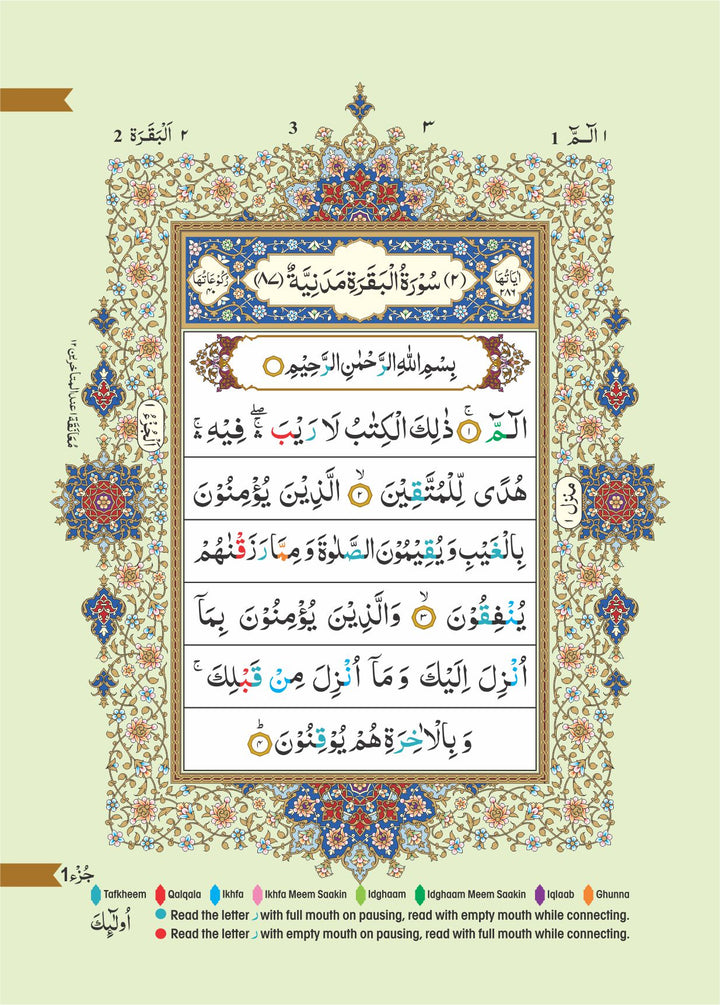 ١ الٓـمّٓ 1
٣
3
٢ اَلْبَقَرَة 2
اٰيَاتُهَا ٢٨٦
(٢) سُوْرَةُ الْبَقَرَةِ مَدَنِيَّةٌ (٨٧)
رُكُوْعَاتُهَا ٤٠
بِسْمِ اللّٰهِ الرَّحْمٰنِ الرَّحِيْمِ
الٓـمّٓ ۚ ١ ذٰلِكَ الْكِتٰبُ لَا رَيْبَ ۛۖ فِيْهِ ۛۚ
هُدًى لِّلْمُتَّقِيْنَ ۙ ٢ الَّذِيْنَ يُؤْمِنُوْنَ
بِالْغَيْبِ وَ يُقِيْمُوْنَ الصَّلٰوةَ وَ مِمَّا رَزَقْنٰهُمْ
يُنْفِقُوْنَ ۙ ٣ وَالَّذِيْنَ يُؤْمِنُوْنَ بِمَاۤ
اُنْزِلَ اِلَيْكَ وَ مَاۤ اُنْزِلَ مِنْ قَبْلِكَ ۚ
وَ بِالْاٰخِرَةِ هُمْ يُوْقِنُوْنَ ؕ ٤
منزل ١
اَلْجُزْءُ ١
مُعَانَقَة ١ عند المتأخرين ١٢
جُزْء1
Tafkheem Qalqala Ikhfa Ikhfa Meem Saakin Idghaam Idghaam Meem Saakin Iqlaab Ghunna
Read the letter ر with full mouth on pausing, read with empty mouth while connecting.
Read the letter ر with empty mouth on pausing, read with full mouth while connecting.
اُولٰٓئِكَ